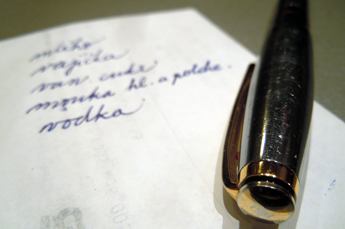 mléko
vajíčka
van. cukr
mouka hl. a polohr.
vodka